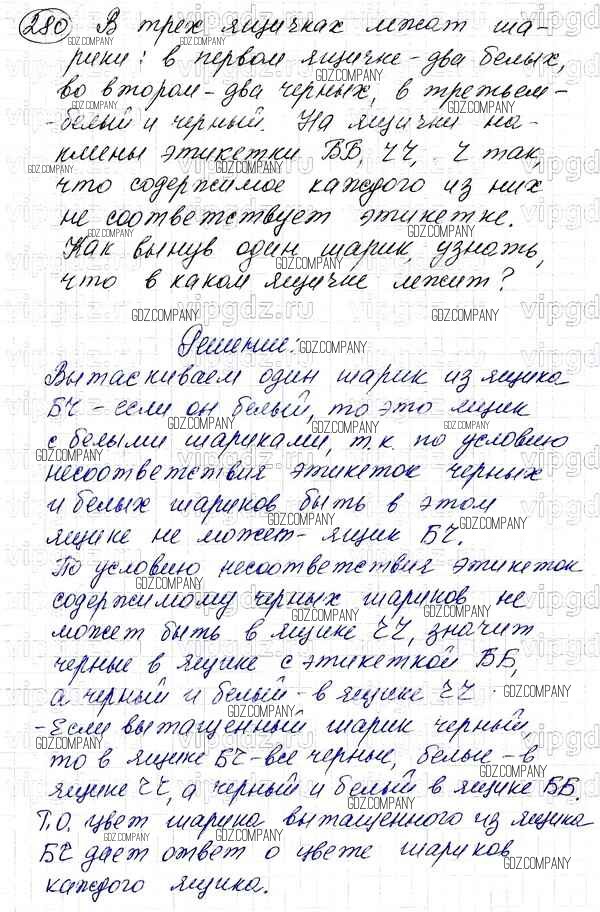 280 В трех ящичках лежат ша-
рики: в первом ящичке - два белых,
во втором - два черных, в третьем -
- белый и черный. На ящички на-
клеены этикетки ББ, ЧЧ, Ч так,
что содержимое каждого из них
не соответствует этикетке.
Как вынув один шарик, узнать,
что в каком ящичке лежит?
Решение:
Вытаскиваем один шарик из ящика
БЧ - если он белый, то это ящик
с белыми шариками, т.к. по условию
несоответствия этикеток черных
и белых шариков быть в этом
ящике не может - ящик БЧ.
По условию несоответствия этикеток
содержимому черных шариков не
может быть в ящике ЧЧ, значит
черные в ящике с этикеткой ББ,
а черный и белый - в ящике ЧЧ.
- Если вытащенный шарик черный,
то в ящике БЧ - все черные, белые - в
ящике ЧЧ, а черный и белый в ящике ББ.
Т.О. цвет шарика вытащенного из ящика
БЧ дает ответ о цвете шариков
каждого ящика.